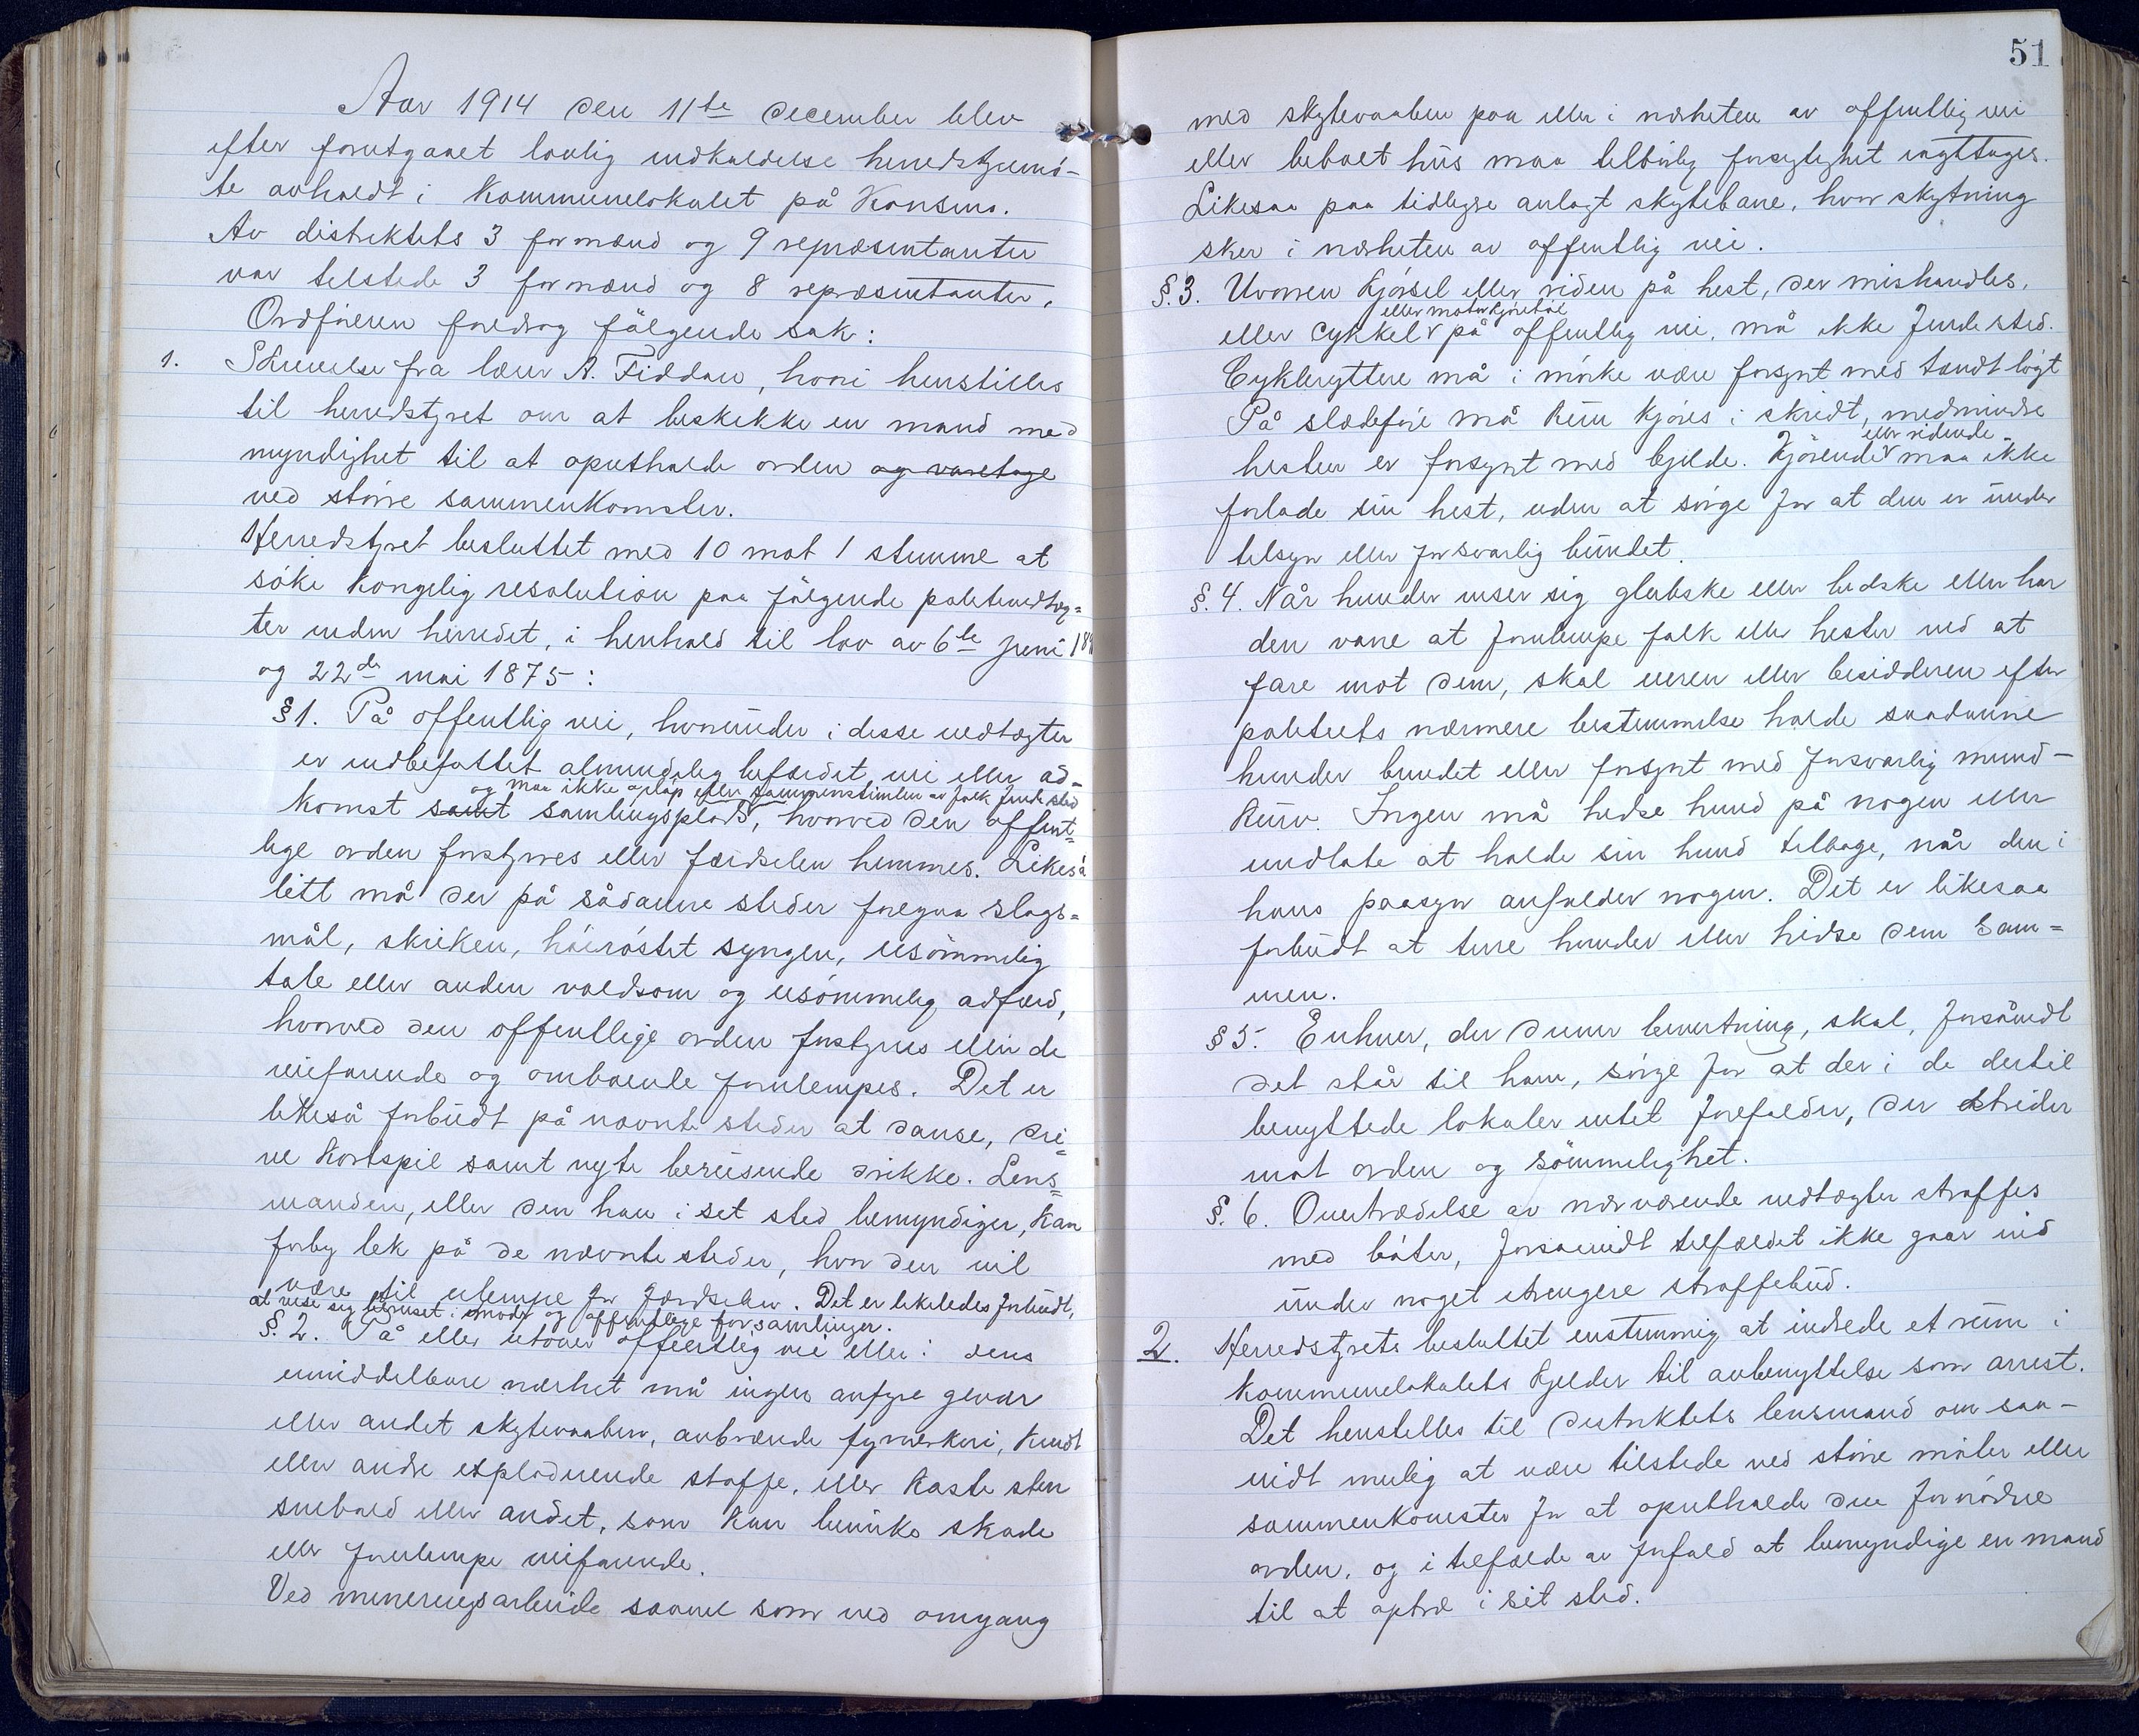 Aar 1914 den 11te december blev
efter forutgaaet lovlig indkaldelse herredstyremö-
te avholdt i Kommunelokalet på Konsmo.
Av distriktets 3 formænd og 9 repræsentanter
var tilstede 3 formænd og 8 repræsentanter.
Ordföreren foredrog fölgende sak:
1. Skrivelse fra lærer A. Fiddan, hvori henstilles
til herredstyret om at beskikke en mand med
myndighet til at oprethalde orden og varetage
ved större sammenkomster.
Herredstyret besluttet med 10 mot 1 stemme at
söke Kongelig resolution paa fölgende politivedtæg=
ter inden herredet, i henhold til lov av 6te juni 18
og 22de mai 1875:
§1. På offentlig vei, hvorunder i disse vedtægter
er indbefattet almindelig befærdet vei eller ad-
og maa ikke opløp eller sammenstimlen av folk finde sted
komst samt samlingsplads, hvorved den offent=
lige orden forstyrres eller færdselen hemmes. Likeså
litt må der på sådanne steder foregaa slags=
mål, skriken, höiröstet syngen, usömmelig
tale eller anden voldsom og usömmelig adfærd,
hvorved den offentlige orden forstyrres eller de
veifarende og omboende forulempes. Det er
likeså forbudt på nævnte steder at danse, dri=
ve kortspil samt nyte berusende drikke. Lens=
manden, eller den han i set sted bemyndiger, kan
forby lek på de nævnte steder, hvor den vil
være til ulempe for færdselen. Det er likeledes forbudt,
at vise sig beruset i möder og offentlige forsamlinger.
§. 2. På eller utover offentlig vei eller i dens
umiddelbare nærhet må ingen anfyre gevær
eller andet skytevaaben, anbrænde fyrverkeri, krudt
eller andre exploderende stoffe, eller kaste sten
snebold eller andet, som kan bevirke skade
eller forulempe veifarende.
Ved mineringsarbeide saavel som ved omgang
51
med skytevaaben paa eller i nærheten av offentlig vei
eller beboet hus maa tilbörlig forsigtighet iagttages.
Likesaa paa tidligere anlagt skytebane, hvor skytning
sker i nærheten av offentlig vei.
§. 3. Uvorren Kjörsel eller riden på hest, der mishandles,
eller motorkjöretöi
eller cykkel på offentlig vei, må ikke finde sted.
Cykleryttere må i mörke være forsynt med tændt lögt
På slædeföre må kun kjöres i skridt, medmindre
eller ridende
hesten er forsynt med bjelde. Kjörende maa ikke
forlade sin hest, uden at sörge for at den er under
tilsyn eller forsvarlig bundet.
§. 4. Når hunder viser sig glubske eller bidske eller har
den vane at forulempe folk eller hester ved at
fare mot dem, skal eieren eller besidderen efter
politiets nærmere bestemmelse holde saadanne
hunder bundet eller forsynt med forsvarlig mund-
kurv. Ingen må hidse hund på nogen eller
undlate at holde sin hund tilbage, når den i
hans paasyn anfalder nogen. Det er likesaa
forbudt at terre hunder eller hidse dem sam=
men.
§5. Enhver, der driver bevertning, skal, forsåvidt
det står til ham, sörge for at der i de dertil
benyttede lokaler intet forefalder, der strider
mot orden og sömmelighet.
§. 6. Overtrædelse av nærværende vedtægter straffes
med böter, forsaavidt tilfældet ikke gaar ind
under noget strengere straffebud.
2. Herredstyrets besluttet enstemmig at indrede et rum i
kommunelokalets kjelder til avbenyttelse som arrest.
Det henstilles til distriktets lensmand om saa-
vidt mulig at være tilstede ved större möter eller
sammenkomster for at oprethalde den fornödne
orden, og i tilfælde av forfald at bemyndige en mand
til at optræ i sit sted.